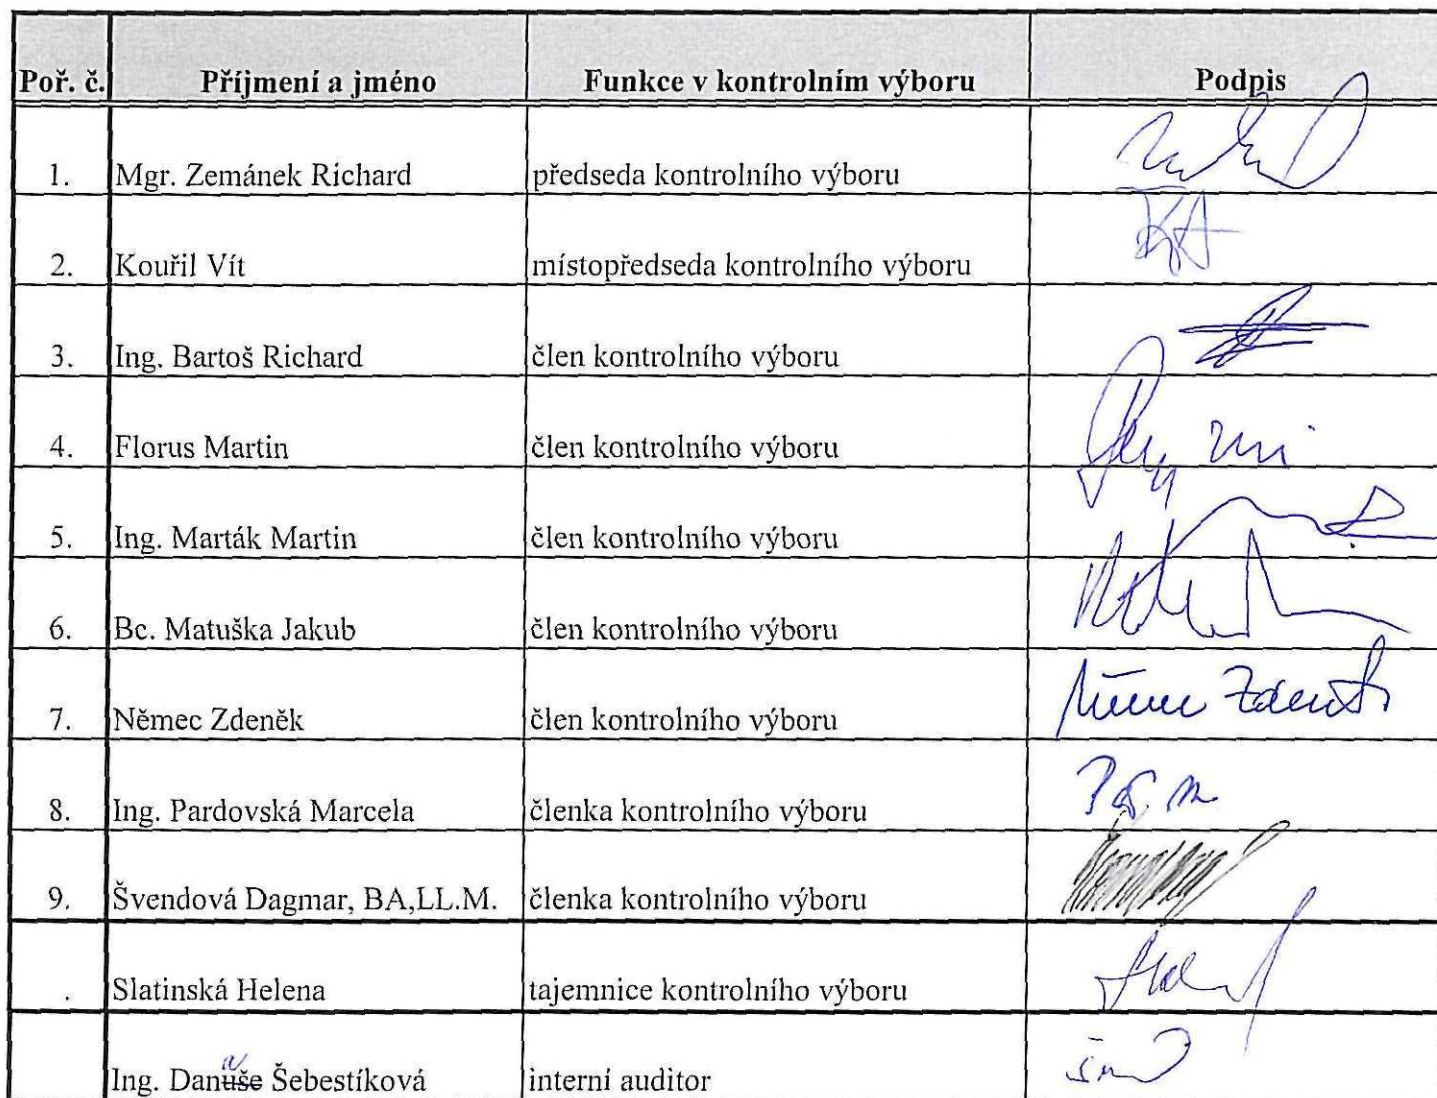 Poř. č. Příjmení a jméno Funkce v kontrolním výboru Podpis
1. Mgr. Zemánek Richard předseda kontrolního výboru
2. Kouřil Vít místopředseda kontrolního výboru
3. Ing. Bartoš Richard člen kontrolního výboru
4. Florus Martin člen kontrolního výboru
5. Ing. Marták Martin člen kontrolního výboru
6. Bc. Matuška Jakub člen kontrolního výboru
7. Němec Zdeněk člen kontrolního výboru
8. Ing. Pardovská Marcela členka kontrolního výboru
9. Švendová Dagmar, BA,LL.M. členka kontrolního výboru
. Slatinská Helena tajemnice kontrolního výboru
Ing. Danuše Šebestíková interní auditor